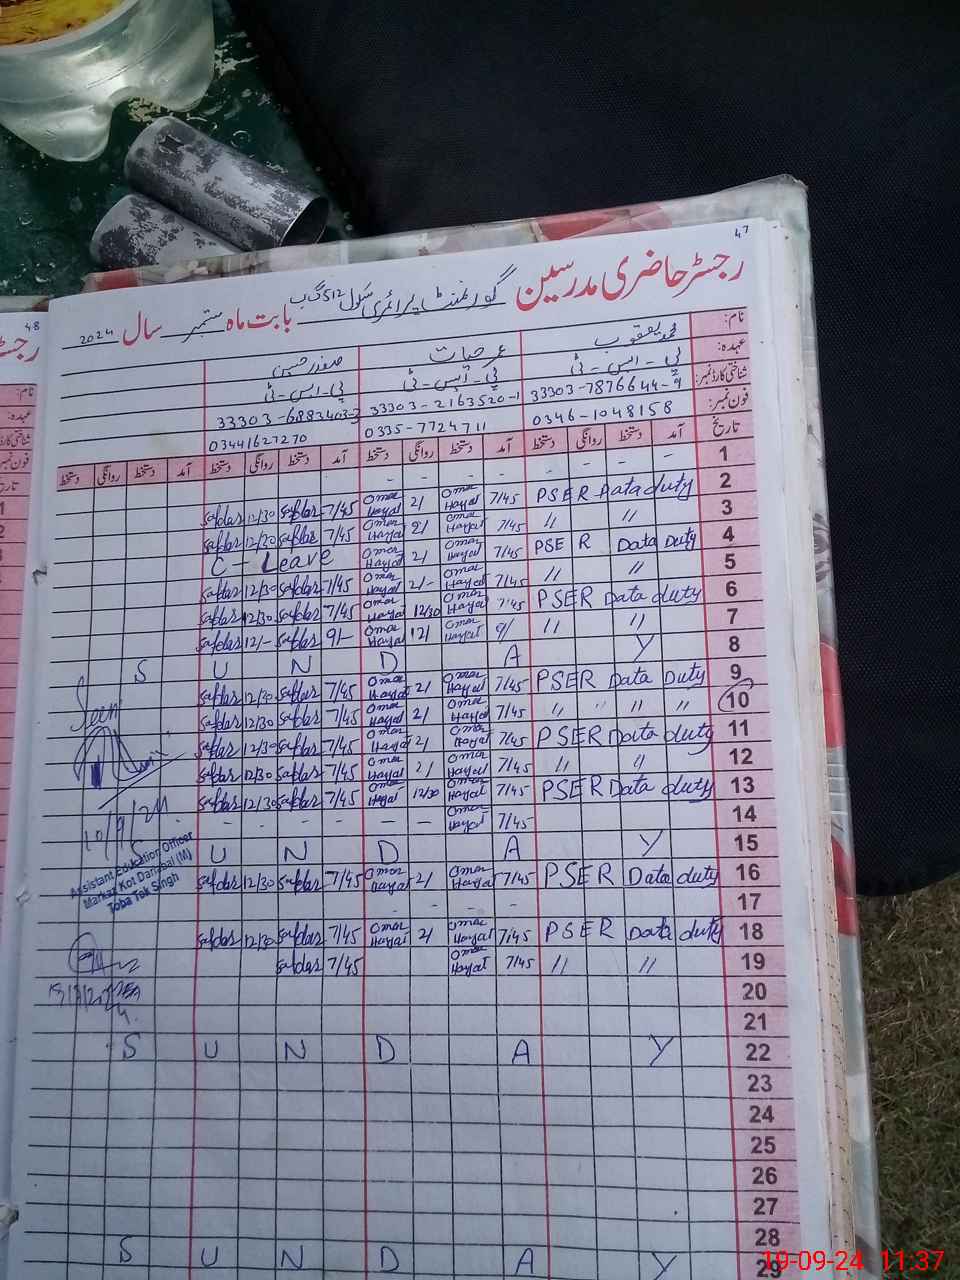 47
رجسٹر حاضری مدرسین گورنمنٹ پرائمری سکول 512 گ ب بابت ماہ ستمبر سال 2024
نام: محمد یعقوب عمر حیات صفدر حسین
عہدہ: پی-ایس-ٹی پی-ایس-ٹی پی-ایس-ٹی
شناختی کارڈ نمبر: 33303-7876644-9 33303-2163520-1 33303-6883403-3
فون نمبر: 0346-1048158 0335-7724711 03441627270
تاریخ آمد دستخط روانگی دستخط آمد دستخط روانگی دستخط آمد دستخط روانگی دستخط آمد دستخط روانگی دستخط
- - - - - - - 1
safdar 12/30 safdar 7/45 Omar Hayat 2/ Omar Hayat 7/45 PSER Data duty 2
safdar 12/30 safdar 7/45 Omar Hayat 2/ Omar Hayat 7/45 // // 3
C - Leave Omar Hayat 2/ Omar Hayat 7/45 PSER Data duty 4
safdar 12/30 safdar 7/45 Omar Hayat 2/- Omar Hayat 7/45 // // 5
safdar 12/30 safdar 7/45 Omar Hayat 12/30 Omar Hayat 7/45 PSER Data duty 6
safdar 12/- safdar 9/- Omar Hayat 12/ Omar Hayat 9/ // // 7
S U N D A Y 8
safdar 12/30 safdar 7/45 Omar Hayat 2/ Omar Hayat 7/45 PSER Data Duty 9
Seen
safdar 12/30 safdar 7/45 Omar Hayat 2/ Omar Hayat 7/45 // // // // 10
safdar 12/30 safdar 7/45 Omar Hayat 2/ Omar Hayat 7/45 PSER Data duty 11
safdar 12/30 safdar 7/45 Omar Hayat 2/ Omar Hayat 7/45 // // 12
safdar 12/30 safdar 7/45 Omar Hayat 12/30 Omar Hayat 7/45 PSER Data duty 13
10/9/24
- - - - - - Omar Hayat 7/45 14
U N D A Y 15
Assistant Education Officer
Markaz Kot Danabal (M)
Toba Tek Singh
safdar 12/30 safdar 7/45 Omar Hayat 2/ Omar Hayat 7/45 PSER Data duty 16
- - - - 17
safdar 12/30 safdar 7/45 Omar Hayat 2/ Omar Hayat 7/45 PSER Data duty 18
safdar 7/45 Omar Hayat 7/45 // // 19
20
21
S U N D A Y 22
23
24
25
26
27
28
S U N D A Y 29
48
19-09-24 11:37